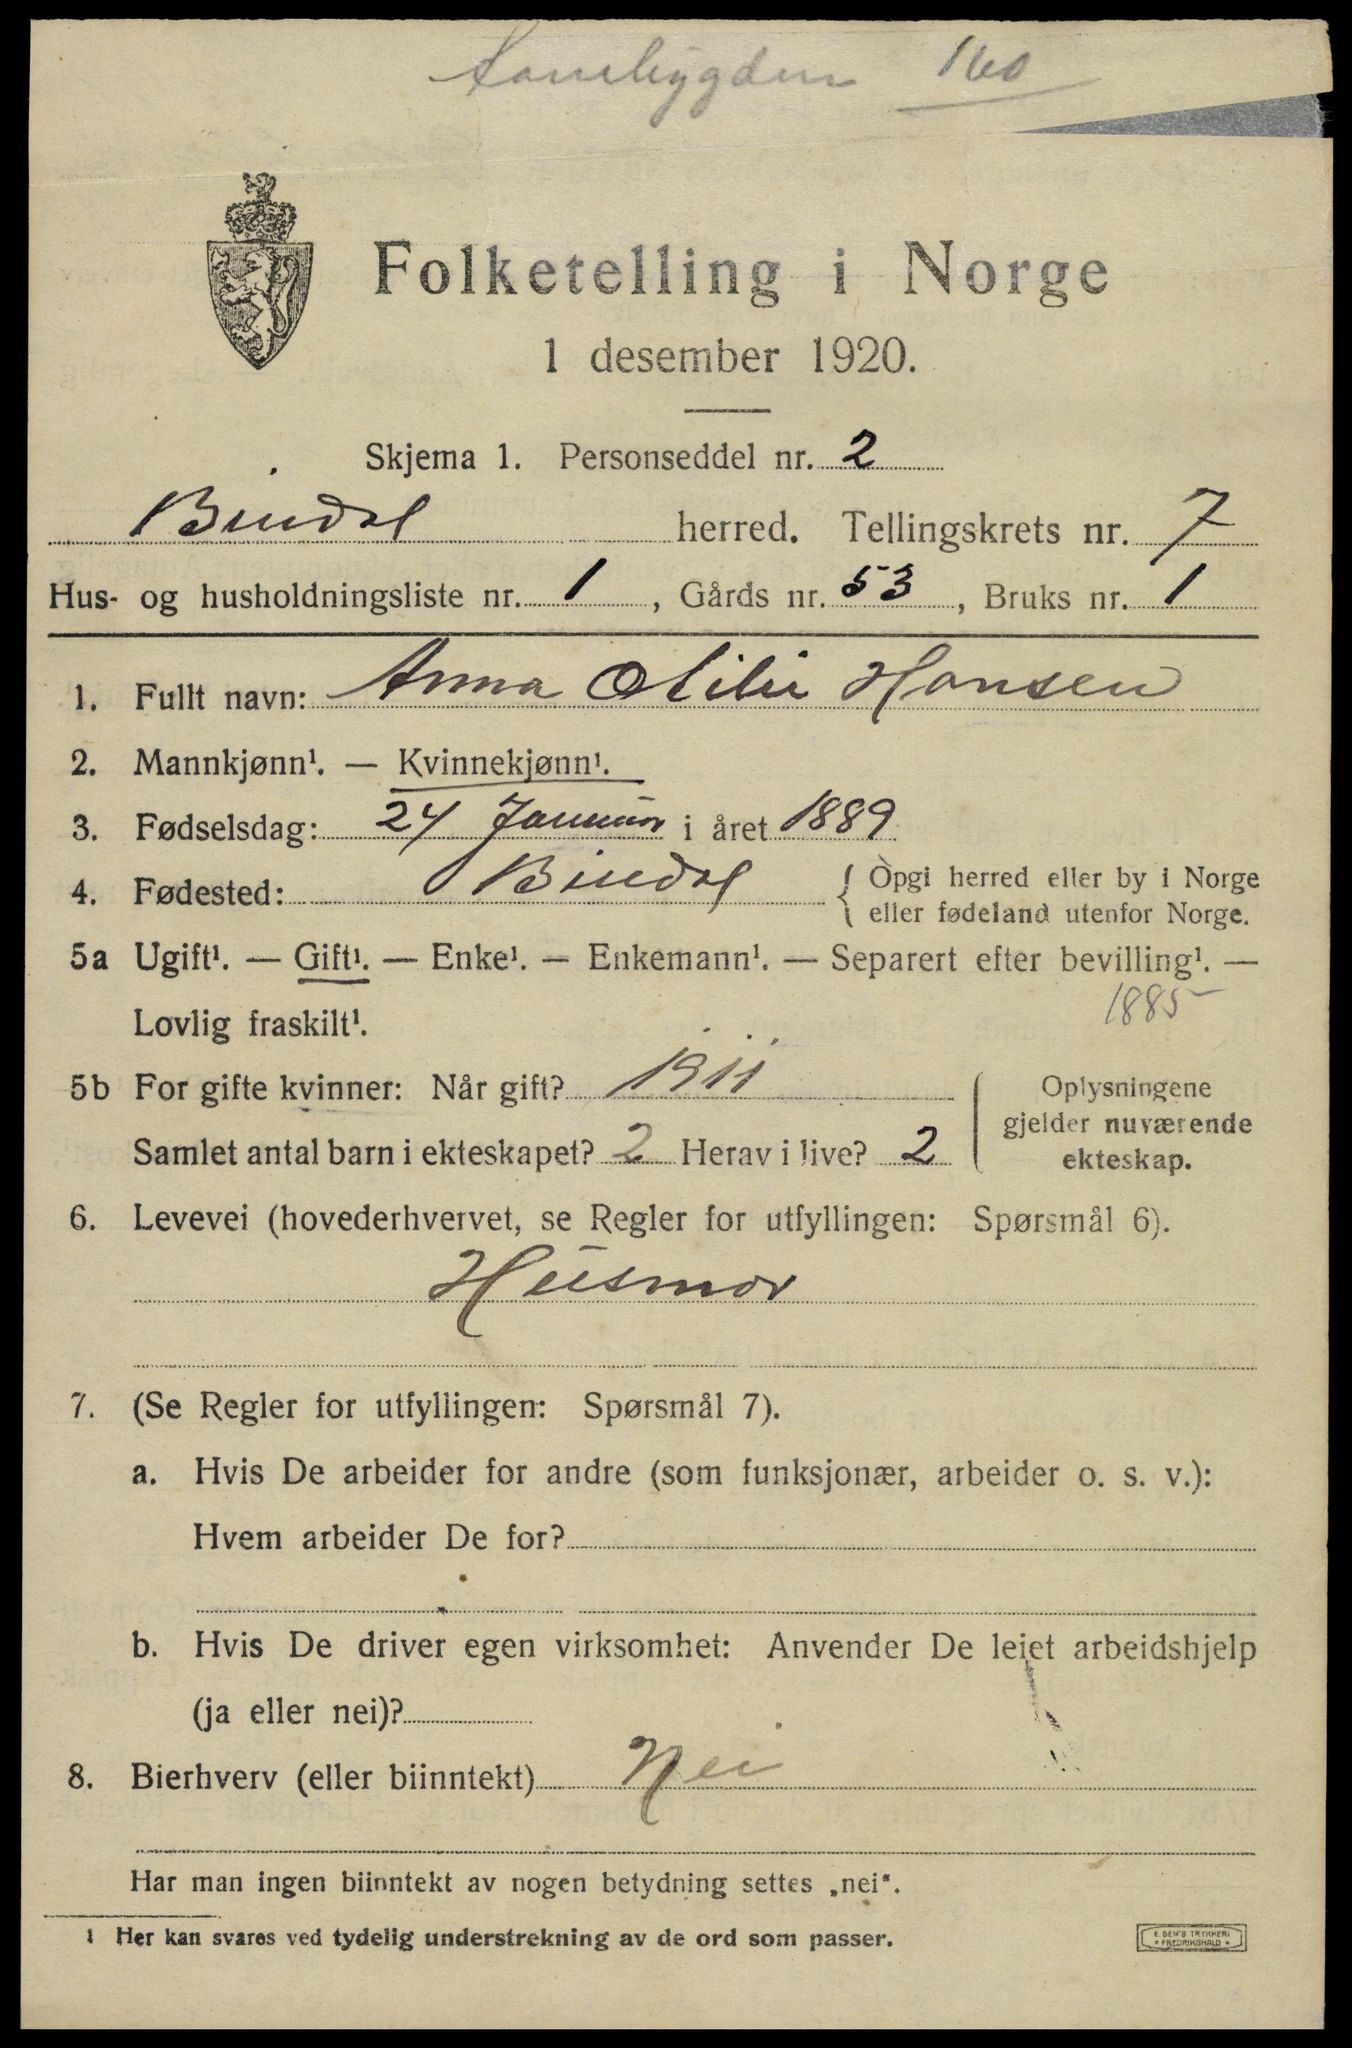 160
Folketelling i Norge
1 desember 1920.
Skjema 1. Personseddel nr. 2
Bindal herred. Tellingskrets nr. 7
Hus- og husholdningsliste nr. 1, Gårds nr. 53, Bruks nr. 1
1. Fullt navn: Anna Otilie Hansen
2. Mannkjønn¹. — Kvinnekjønn¹.
3. Fødselsdag: 24 Januar i året 1889
4. Fødested: Bindal { Opgi herred eller by i Norge
eller fødeland utenfor Norge.
5a Ugift¹. — Gift¹. — Enke¹. — Enkemann¹. — Separert efter bevilling¹. —
Lovlig fraskilt¹. 1885
5b For gifte kvinner: Når gift? 1911
Samlet antal barn i ekteskapet? 2 Herav i live? 2
Oplysningene
gjelder nuværende
ekteskap.
6. Levevei (hovederhvervet, se Regler for utfyllingen: Spørsmål 6).
Husmor
7. (Se Regler for utfyllingen: Spørsmål 7).
a. Hvis De arbeider for andre (som funksjonær, arbeider o. s. v.):
Hvem arbeider De for?
b. Hvis De driver egen virksomhet: Anvender De leiet arbeidshjelp
(ja eller nei)?
8. Bierhverv (eller biinntekt) Nei
Har man ingen biinntekt av nogen betydning settes „nei“.
1 Her kan svares ved tydelig understrekning av de ord som passer.
E. SEM'S TRYKKERI
* FREDRIKSHALD *